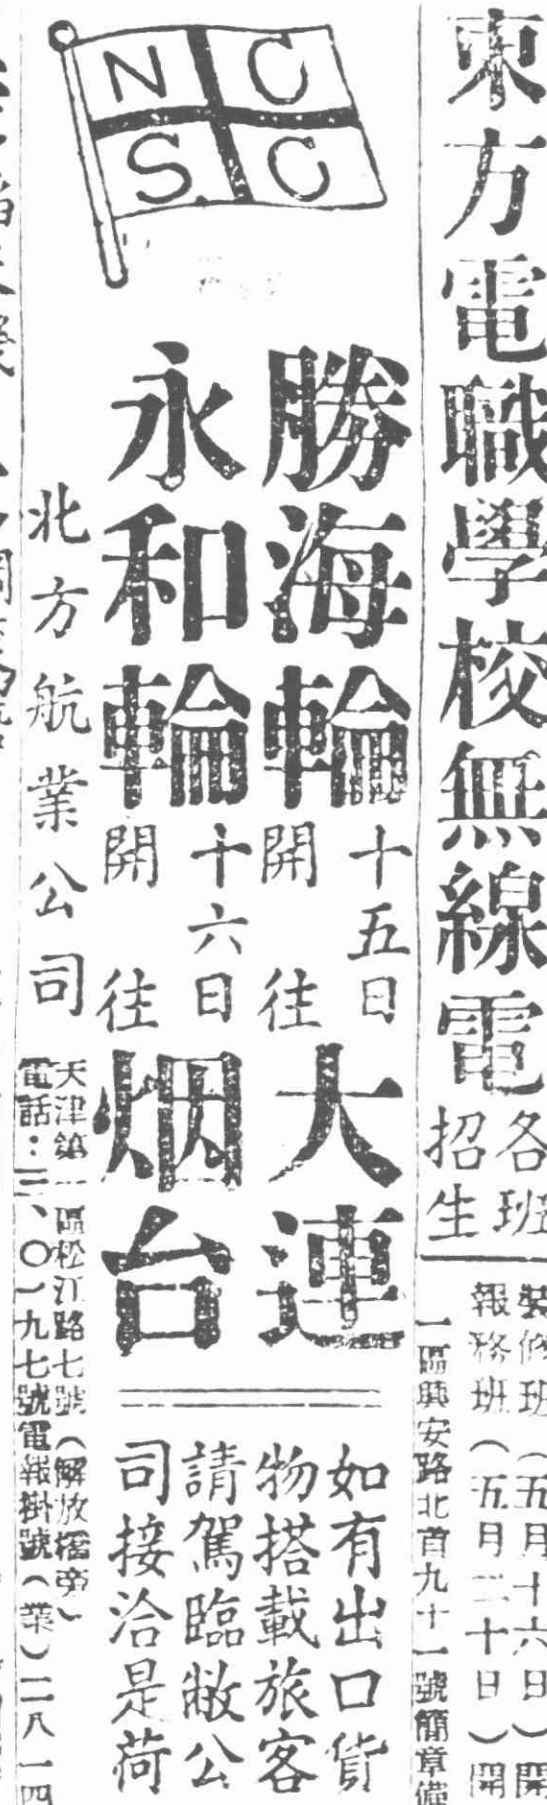 東方電職學校無線電
各班
招生
裝修班（五月十六日）開
報務班（五月二十日）開
一區興安路北首九十一號簡章備
N C
S C
勝海輪
十五日
開往
大連
永和輪
十六日
開往
烟台
如有出口貨
物搭載旅客
請駕臨敝公
司接洽是荷
北方航業公司
天津第一區松江路七號（解放橋旁）
電話：二、〇一九七號電報掛號（業）二八一四